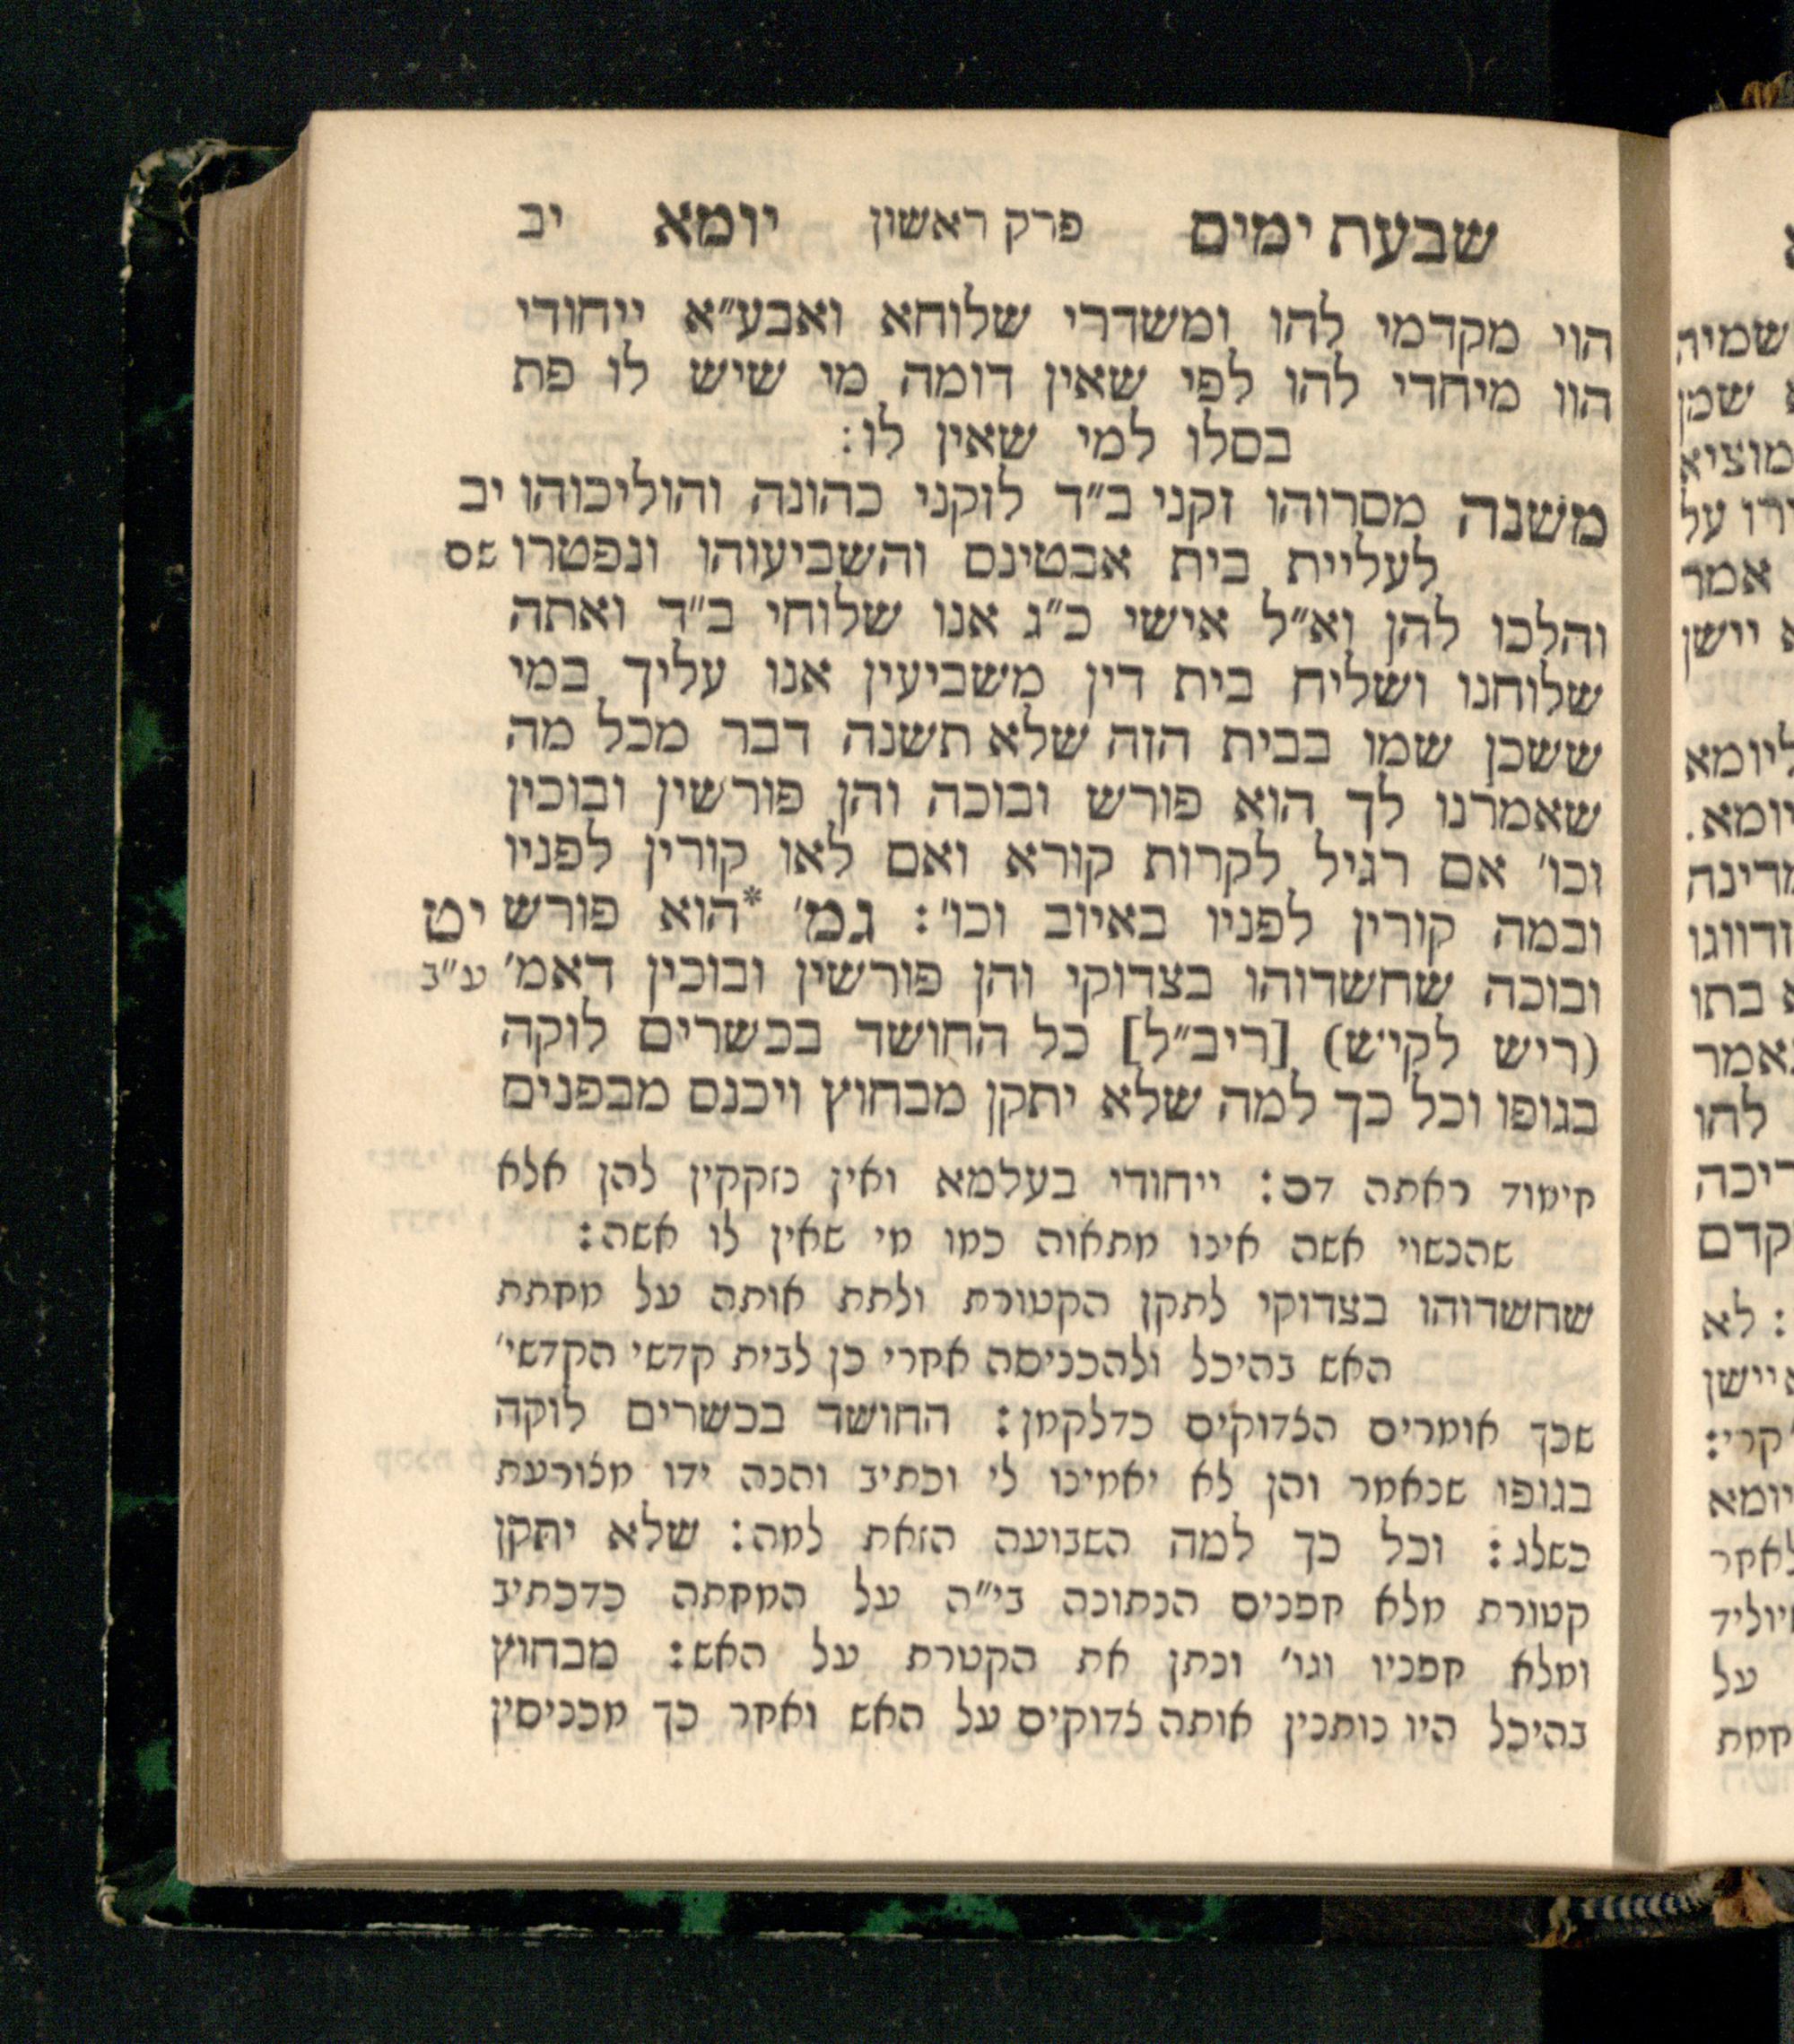 שבעת ימים פרק ראשון יומא יב
הוי מקדמי להו ומשדרי שלוחא ואבע״א ייחודי
הוו מיחדי להו לפי שאין דומה מי שיש לו פת
בסלו למי שאין לו:
משנה מסרוהו זקני ב״ד לזקני כהונה והוליכוהו יב
לעליית בית אבטינס והשביעוהו ונפטרו שם
והלכו להן וא״ל אישי כ״ג אנו שלוחי ב״ד ואתה
שלוחנו ושליח בית דין משביעין אנו עליך במי
ששכן שמו בבית הזה שלא תשנה דבר מכל מה
שאמרנו לך הוא פורש ובוכה והן פורשין ובוכין
וכו׳ אם רגיל לקרות קורא ואם לאו קורין לפניו
ובמה קורין לפניו באיוב וכו׳: גמ׳ *הוא פורש יט
ובוכה שחשדוהו בצדוקי והן פורשין ובוכין דאמ׳ ע״ב
(ריש לקיש) [ריב״ל] כל החושד בכשרים לוקה
בגופו וכל כך למה שלא יתקן מבחוץ ויכנס מבפנים
חימוד ראתה דם: ייחודי בעלמא ואין נזקקין להן אלא
שהנשוי אשה אינו מתאוה כמו מי שאין לו אשה:
שחשדוהו בצדוקי לתקן הקטורת ולתת אותה על מחתת
האש בהיכל ולהכניסה אחרי כן לבית קדשי הקדשי׳
שכך אומרים הצדוקים כדלקמן: החושד בכשרים לוקה
בגופו שנאמר והן לא יאמינו לי וכתיב והנה ידו מצורעת
כשלג: וכל כך למה השבועה הזאת למה: שלא יתקן
קטורת מלא חפנים הנתונה בי״ה על המחתה כדכתיב
ומלא חפניו וגו׳ ונתן את הקטרת על האש: מבחוץ
בהיכל היו נותנין אותה צדוקים על האש ואחר כך מכניסין
שמיה
שמן
מוציא
אמר
יישן
ליומא
יומא.
בתו
להו
קדם
: לא
יומא
על